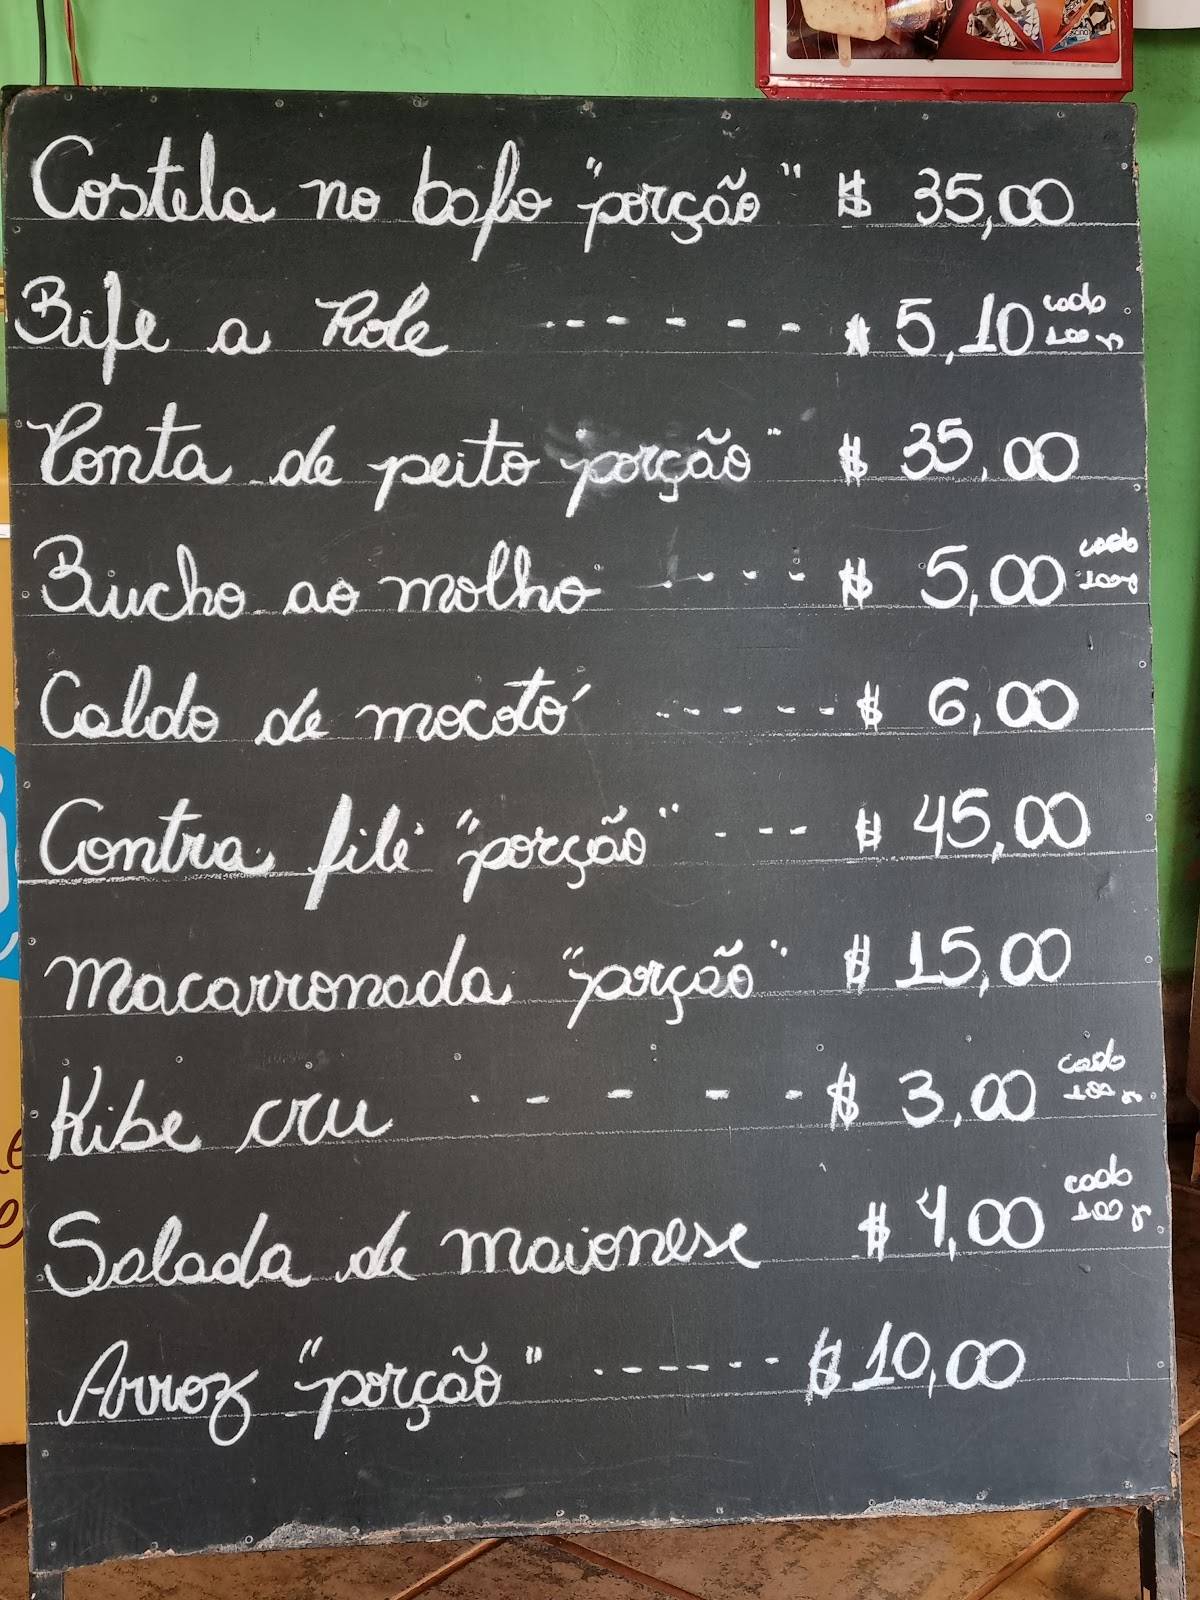 Costela no bafo "porção" $ 35,00
Bife a Role ------ $ 5,10 cada 100 g
Ponta de peito porção" $ 35,00
Bucho ao molho ---- $ 5,00 cada 100g
Caldo de mocotó ----- $ 6,00
Contra filé "porção" --- $ 45,00
Macarronada "porção" $ 15,00
Kibe cru ----- $ 3,00 cada 100 g
Salada de maionese $ 4,00 cada 100 g
Arroz "porção" ------ $ 10,00